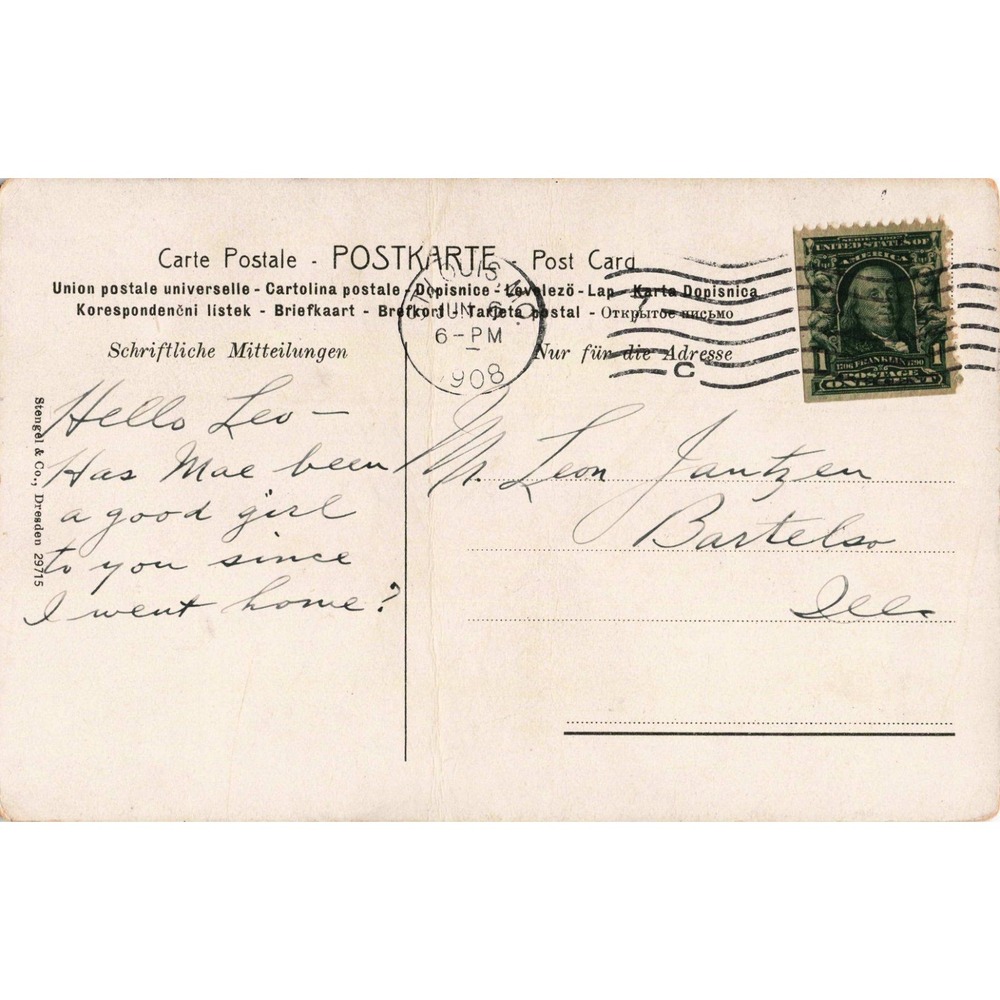 Carte Postale - POSTKARTE - Post Card
Union postale universelle - Cartolina postale - Dopisnice - Levelezö - Lap - Karta Dopisnica
Korespondenční listek - Briefkaart - Brefkort - Tarjeta postal - Открытое письмо
Schriftliche Mitteilungen
Nur für die Adresse
ST. LOUIS, MO.
JUN 6
6-PM
1908
C
SERIES 1902
UNITED STATES OF
AMERICA
1 1
1706 FRANKLIN 1790
POSTAGE
ONE CENT
Stengel & Co., Dresden 29715
Hello Leo —
Has Mae been
a good girl
to you since
I went home?
Mr. Leon Jantzen
Bartelso
Ill.